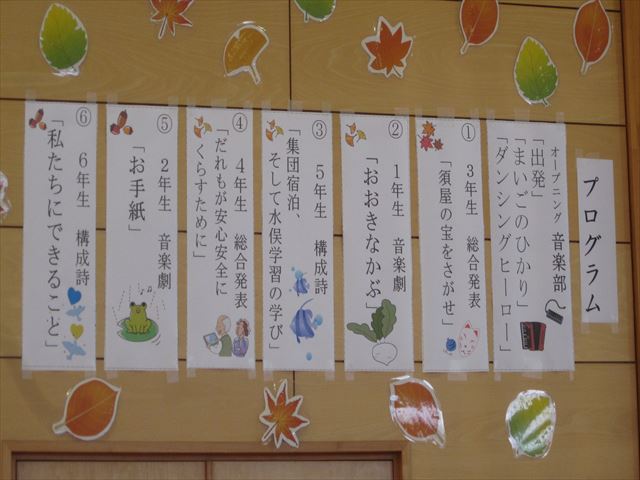 プログラム
オープニング 音楽部
「出発」
「まいごのひかり」
「ダンシングヒーロー」
① 3年生 総合発表
「須屋の宝をさがせ」
② 1年生 音楽劇
「おおきなかぶ」
③ 5年生 構成詩
「集団宿泊、
そして水俣学習の学び」
④ 4年生 総合発表
「だれもが安心安全に
くらすために」
⑤ 2年生 音楽劇
「お手紙」
⑥ 6年生 構成詩
「私たちにできること」